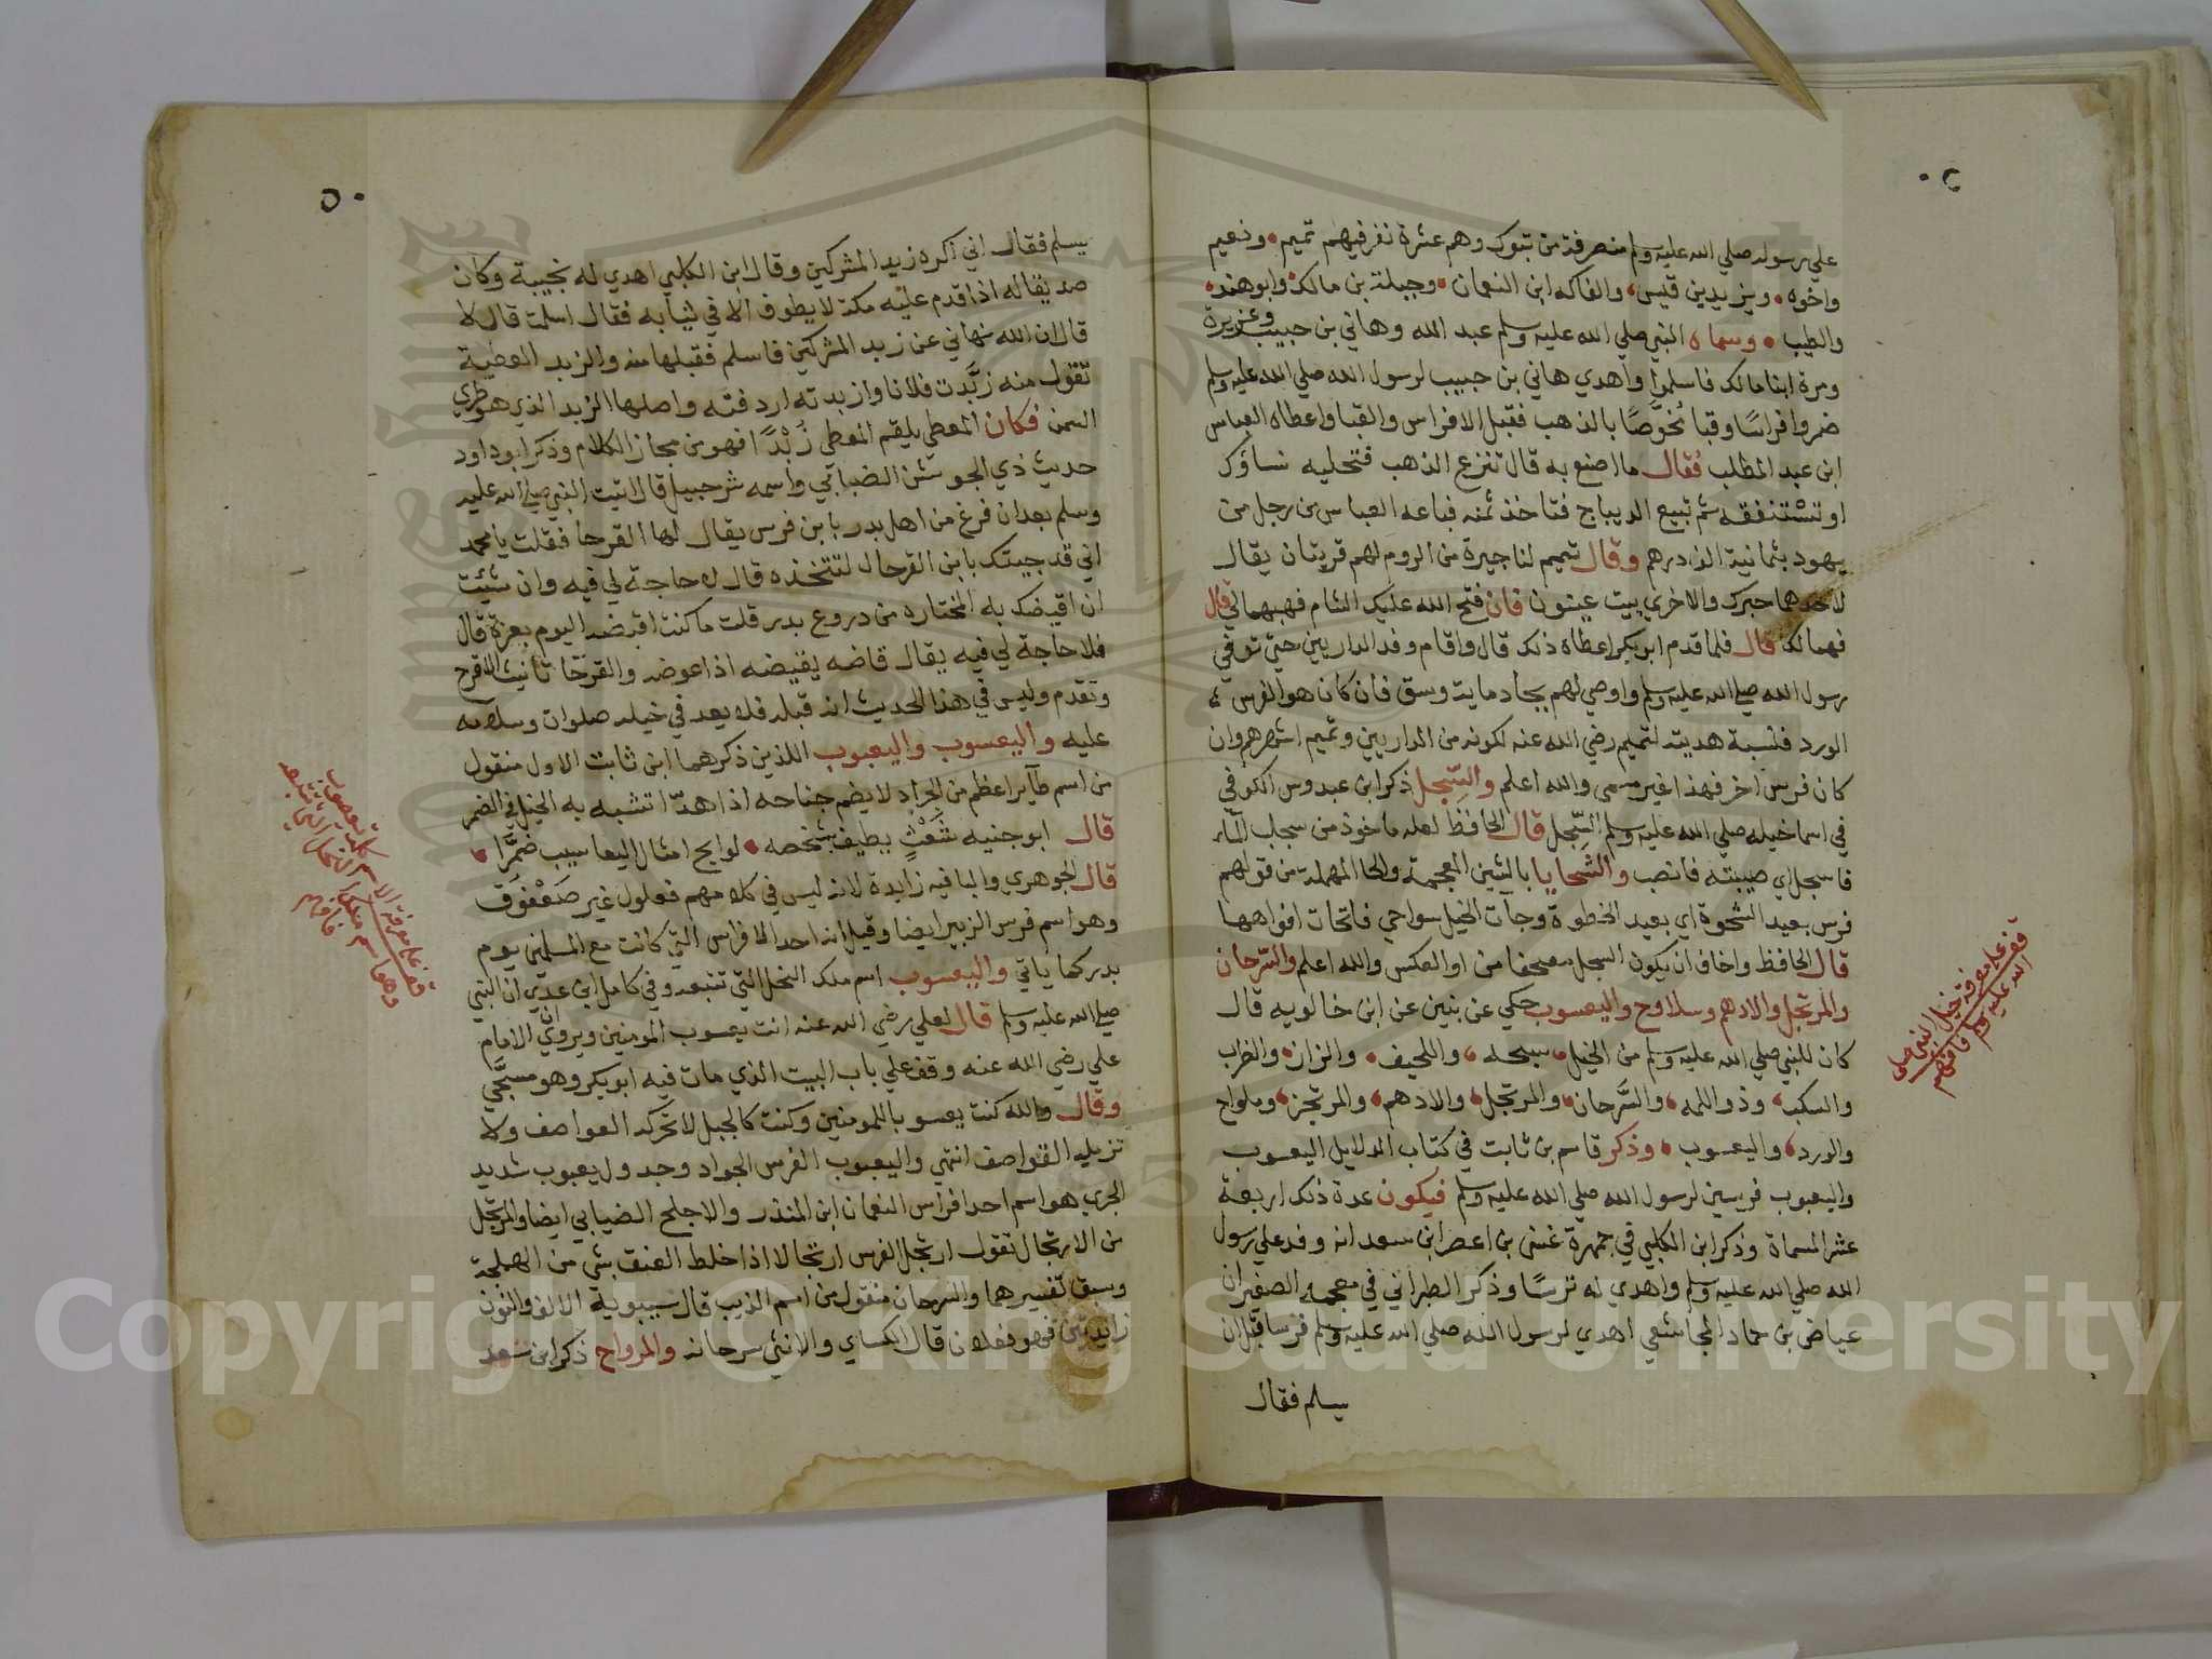 على رسول صلي الله عليه وسلم منصرفة من تبوك وهم عشرة نفر فيهم تميم ونعيم
واخوه ويزيد بن قيس والفاكه ابن النعمان وجبلة بن مالك وابو هند
والطيب وسماه النبي صلي الله عليه وسلم عبد الله وهاني بن حبيب وعزيزة
ومرة ابنا مالك فاسلموا واهدي هاني بن حبيب لرسول الله صلي الله عليه وسلم
خمر وافراسًا وقبا مخوَّصًا بالذهب فقبل الافراس والقبا واعطاه العباس
ابن عبد المطلب فقال ما اصنع به قال تنزع الذهب فتحليه نساؤك
او تسْتنفقه ثم تبيع الديباج فتاخذ ثمنه فباعه العباس من رجل من
يهود بثمانية الاف درهم وقال تميم لنا جيرة من الروم لهم قريتان يقال
لاحدهما حبرى والاخري بيت عينون فان فتح الله عليك الشام فهبهما لي قال
فهما لك قال فلما قدم ابو بكر اعطاه ذلك قال واقام وفد الداريين حتي توفي
رسول الله صلي الله عليه وسلم واوصي لهم بجاد ماية وسق فان كان هو الفرس
الورد فنسبة هديته لتميم رضي الله عنه لكونه من الداريين وتميم اشهرهم وان
كان فرس اخر فهذا غير مسمى والله اعلم والسِّجل ذكر ابن عبدوس الكوفي
في اسما خيله صلي الله عليه وسلم السِّجل قال الحافظ لعله ماخوذ من سجلت الماء
فاسجل اي صببته فانصب والشحايا بالشين المعجمة والحا المهملة من قولهم
فرس بعيد الشحوة اي بعيد الخطوة وجات الخيل سواحي فاتحات افواهها
قال الحافظ واخاف ان يكون السجل مصحفا من او العكس والله اعلم والسِّرحان
والمرتجل والادهم وسلاوح واليعسوب حكي عن بنين عن ابن خالويه قال
كان للنبي صلي الله عليه وسلم من الخيل سبحه واللحيف والزاز والظرب
والسكب وذو اللمه والسَّرحان والمرتجل والادهم والمرتجز وملواح
والورد واليعسوب وذكر قاسم بن ثابت في كتاب الدلايل اليعسوب
واليعبوب فرسين لرسول الله صلي الله عليه وسلم فيكون عدة ذلك اربعة
عشر المسماة وذكر ابن الكلبي في جمهرة غنى بن اعصر ابن سعد انه وفد علي رسول
الله صلي الله عليه وسلم واهدي له ترسًا وذكر الطبراني في معجمه الصغير ان
عياض بن حماد المجاشعي اهدي لرسول الله صلي الله عليه وسلم فرسا قبل ان
يسلم فقال
قف علي معرفة خيل النبي صلى
الله عليه وسلم
٥٠
يسلم فقال اني اكره زبد المشركين وقال ابن الكلبي اهدي له نجيبة وكان
صديقا له اذا قدم عليه مكة لا يطوف الا في ثيابه فقال اسلمت قال لا
قال ان الله نهاني عن زبد المشركين فاسلم فقبلها منه والزبد العطية
تقول منه زبَّدت فلانا وازبدته اردفته واصلها الزبد الذي هو طري
السمن فكان المعطي يلقم المعطى زُبْدًا فهو من مجاز الكلام وذكر ابو داود
حديث ذي الجوشن الضبابي واسمه شرحبيل قال اتيت النبي صلي الله عليه
وسلم بعد ان فرغ من اهل بدر بابن فرس يقال لها القرحا فقلت يا محمد
اني قد جيتك بابن القرحا لتتخذه قال لا حاجة لي فيه وان شئت
ان اقيضك به المختاره من دروع بدر قلت ما كنت اقيضه اليوم بعزة قال
فلا حاجة لي فيه يقال قاضه يقيضه اذا عوضه والقرحا تانيث الاقرح
وتقدم وليس في هذا الحديث انه قبله فلا يعد في خيله صلوات وسلامه
عليه واليعسوب واليعبوب اللذين ذكرهما ابن ثابت الاول منقول
من اسم طاير اعظم من الجراد لا يضم جناحه اذا هدّا تشبه به الخيل في الضمر
قال ابو جنيه شَعْثٍ يطيف بشخصه لوايح امثال اليعاسيب ضمَّرا
قال الجوهري واليا فيه زايدة لانه ليس في كلامهم فعلول غير صَعْفُوق
وهو اسم فرس الزبير ايضا وقيل انه احد الافراس التي كانت مع المسلمين يوم
بدر كما ياتي واليعسوب اسم ملك النحل التي تتبعه وفي كامل ابن عديّ ان النبي
صلي الله عليه وسلم قال لعلي رضي الله عنه انت يعسوب المومنين ويروي ان الامام
علي رضي الله عنه وقف علي باب البيت الذي مات فيه ابو بكر وهو مسجَّي
وقال والله كنت يعسوبا للمومنين وكنت كالجبل لا تحركه العواصف ولا
تزيله القواصف انتهي واليعبوب الفرس الجواد وجدول يعبوب شديد
الجري هو اسم احد افراس النعمان ابن المنذر والاجلح الضبابي ايضا والمرتجل
من الارتجال تقول ارتجل الفرس ارتجالا اذا خلط العنق بشي من الهملجة
وسبق تفسيرهما والسرحان منقول من اسم الذيب قال سيبويه الالف والنون
زايدتين فهو فعلان قال الكساي والانثي سرحانه والمرواح ذكر ابن سعد
Copyright © King Saud University